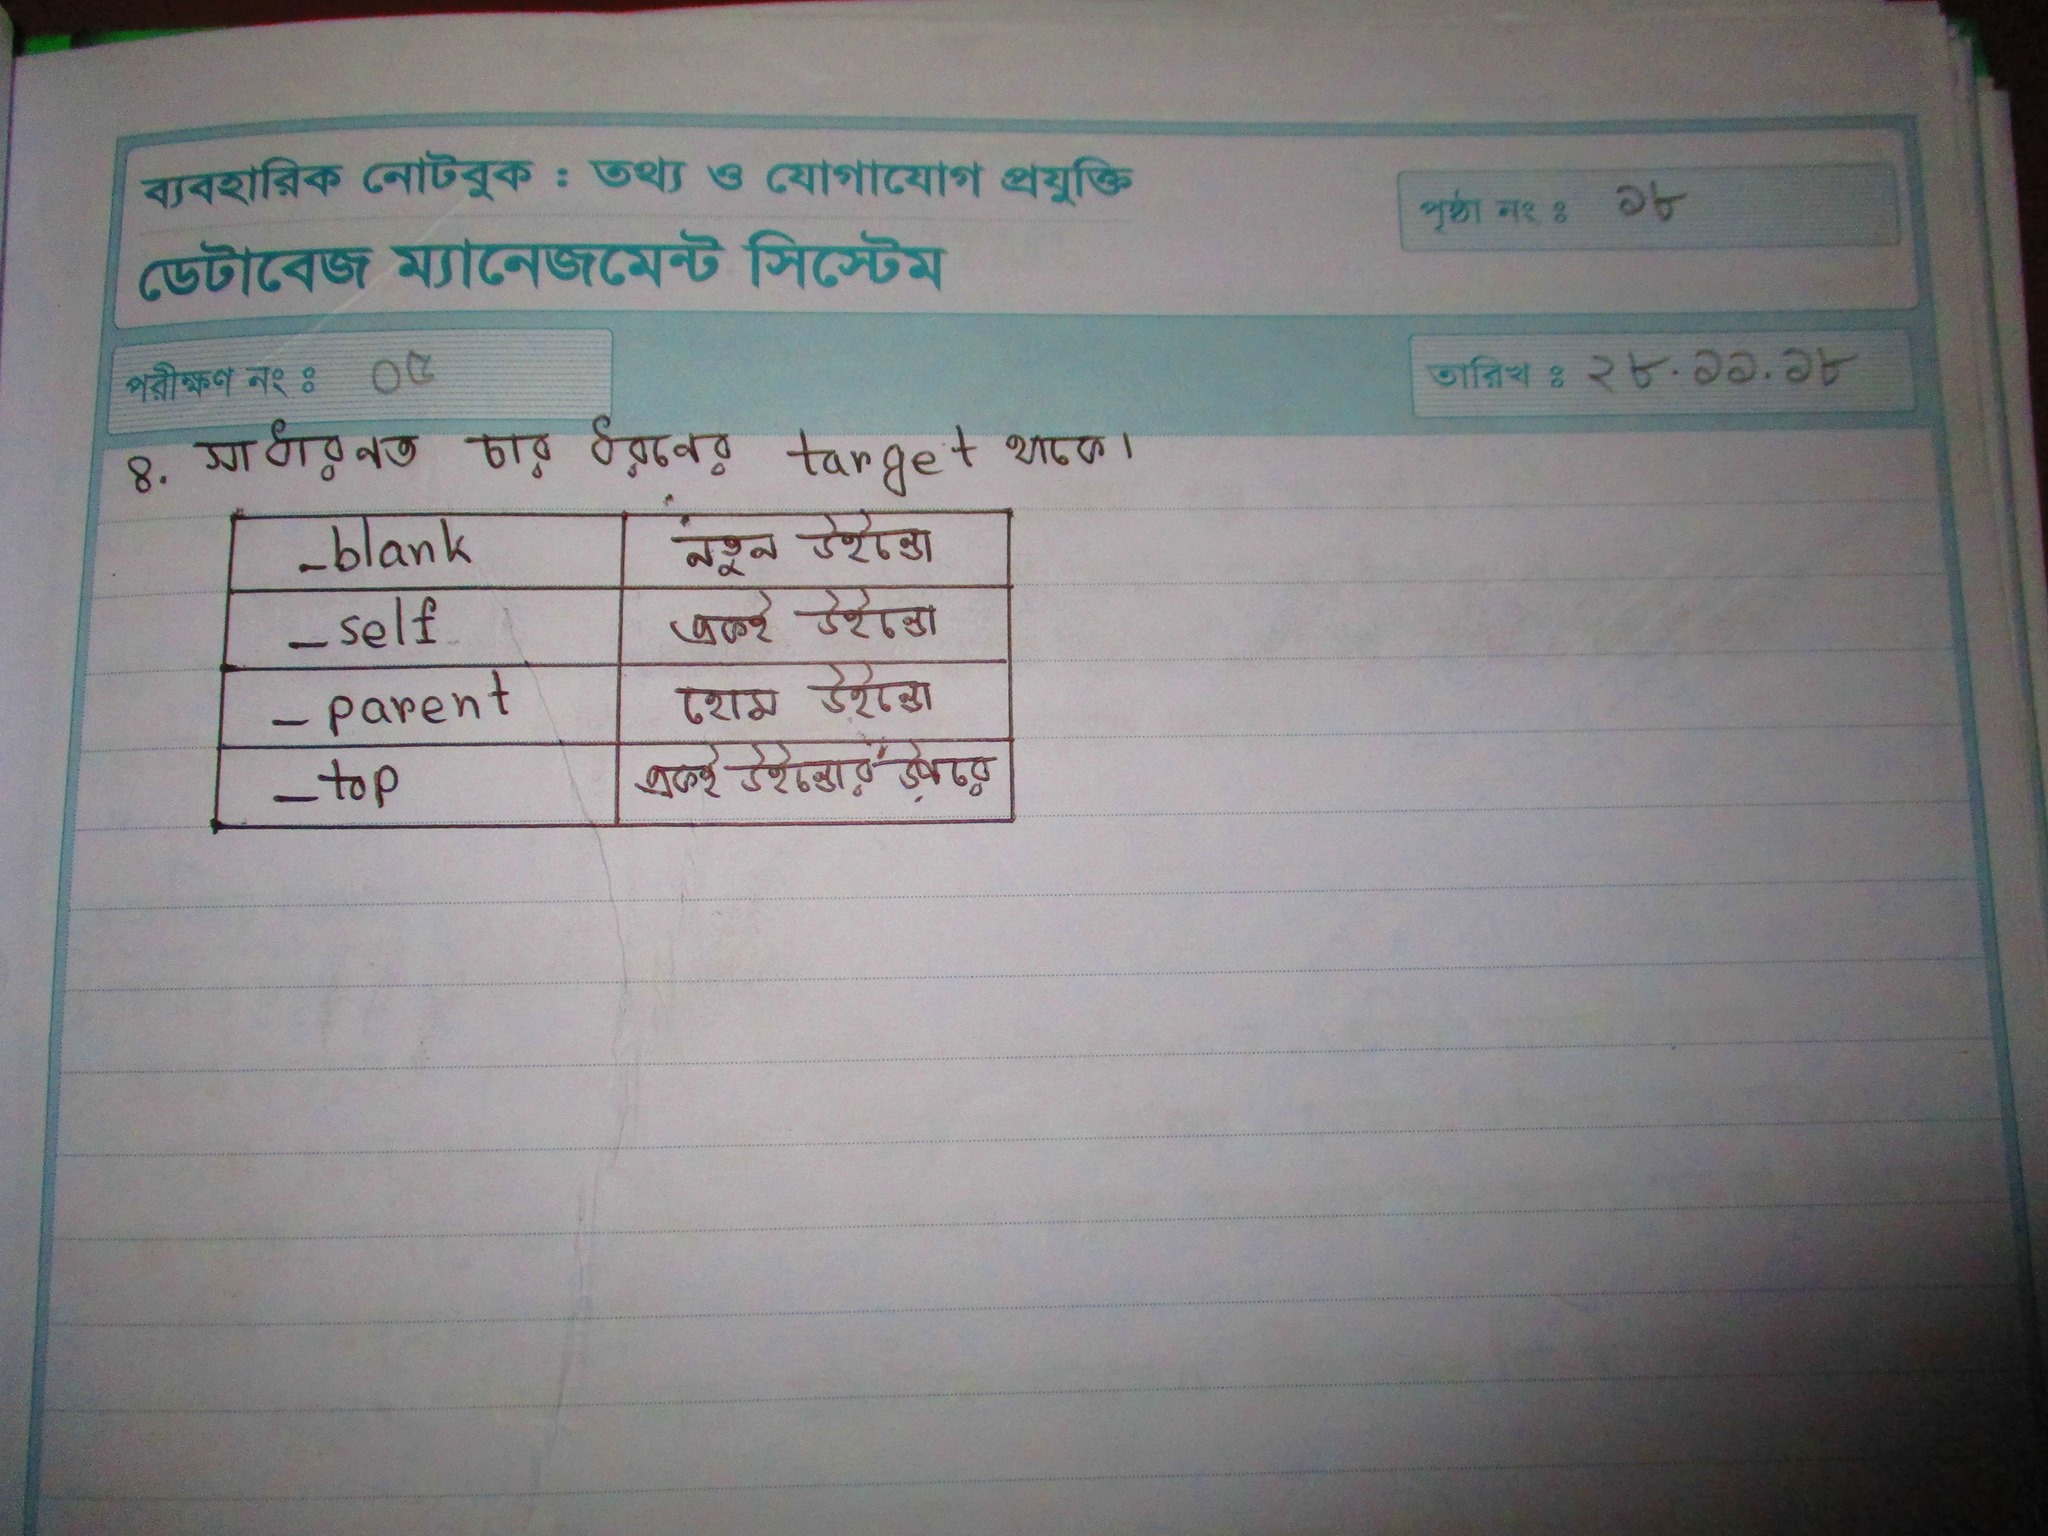 ব্যবহারিক নোটবুক : তথ্য ও যোগাযোগ প্রযুক্তি
পৃষ্ঠা নং : ১৮
ডেটাবেজ ম্যানেজমেন্ট সিস্টেম
পরীক্ষণ নং : ০৫
তারিখ : ২৮.১১.১৮
৪. সাধারনত চার ধরনের target থাকে।
_blank নতুন উইন্ডো
_self একই উইন্ডো
_parent হোম উইন্ডো
_top একই উইন্ডোর উপরে